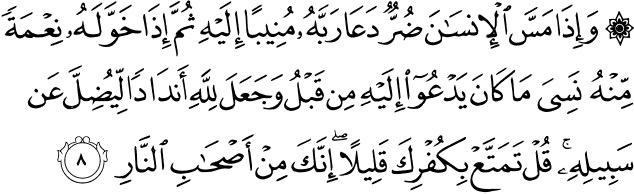 ۞ وَإِذَا مَسَّ ٱلْإِنسَـٰنَ ضُرٌّ دَعَا رَبَّهُۥ مُنِيبًا إِلَيْهِ ثُمَّ إِذَا خَوَّلَهُۥ نِعْمَةً
مِّنْهُ نَسِىَ مَا كَانَ يَدْعُوٓا۟ إِلَيْهِ مِن قَبْلُ وَجَعَلَ لِلَّهِ أَندَادًا لِّيُضِلَّ عَن
سَبِيلِهِۦ ۚ قُلْ تَمَتَّعْ بِكُفْرِكَ قَلِيلًا ۖ إِنَّكَ مِنْ أَصْحَـٰبِ ٱلنَّارِ ٨